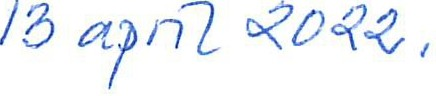 13 april 2022.